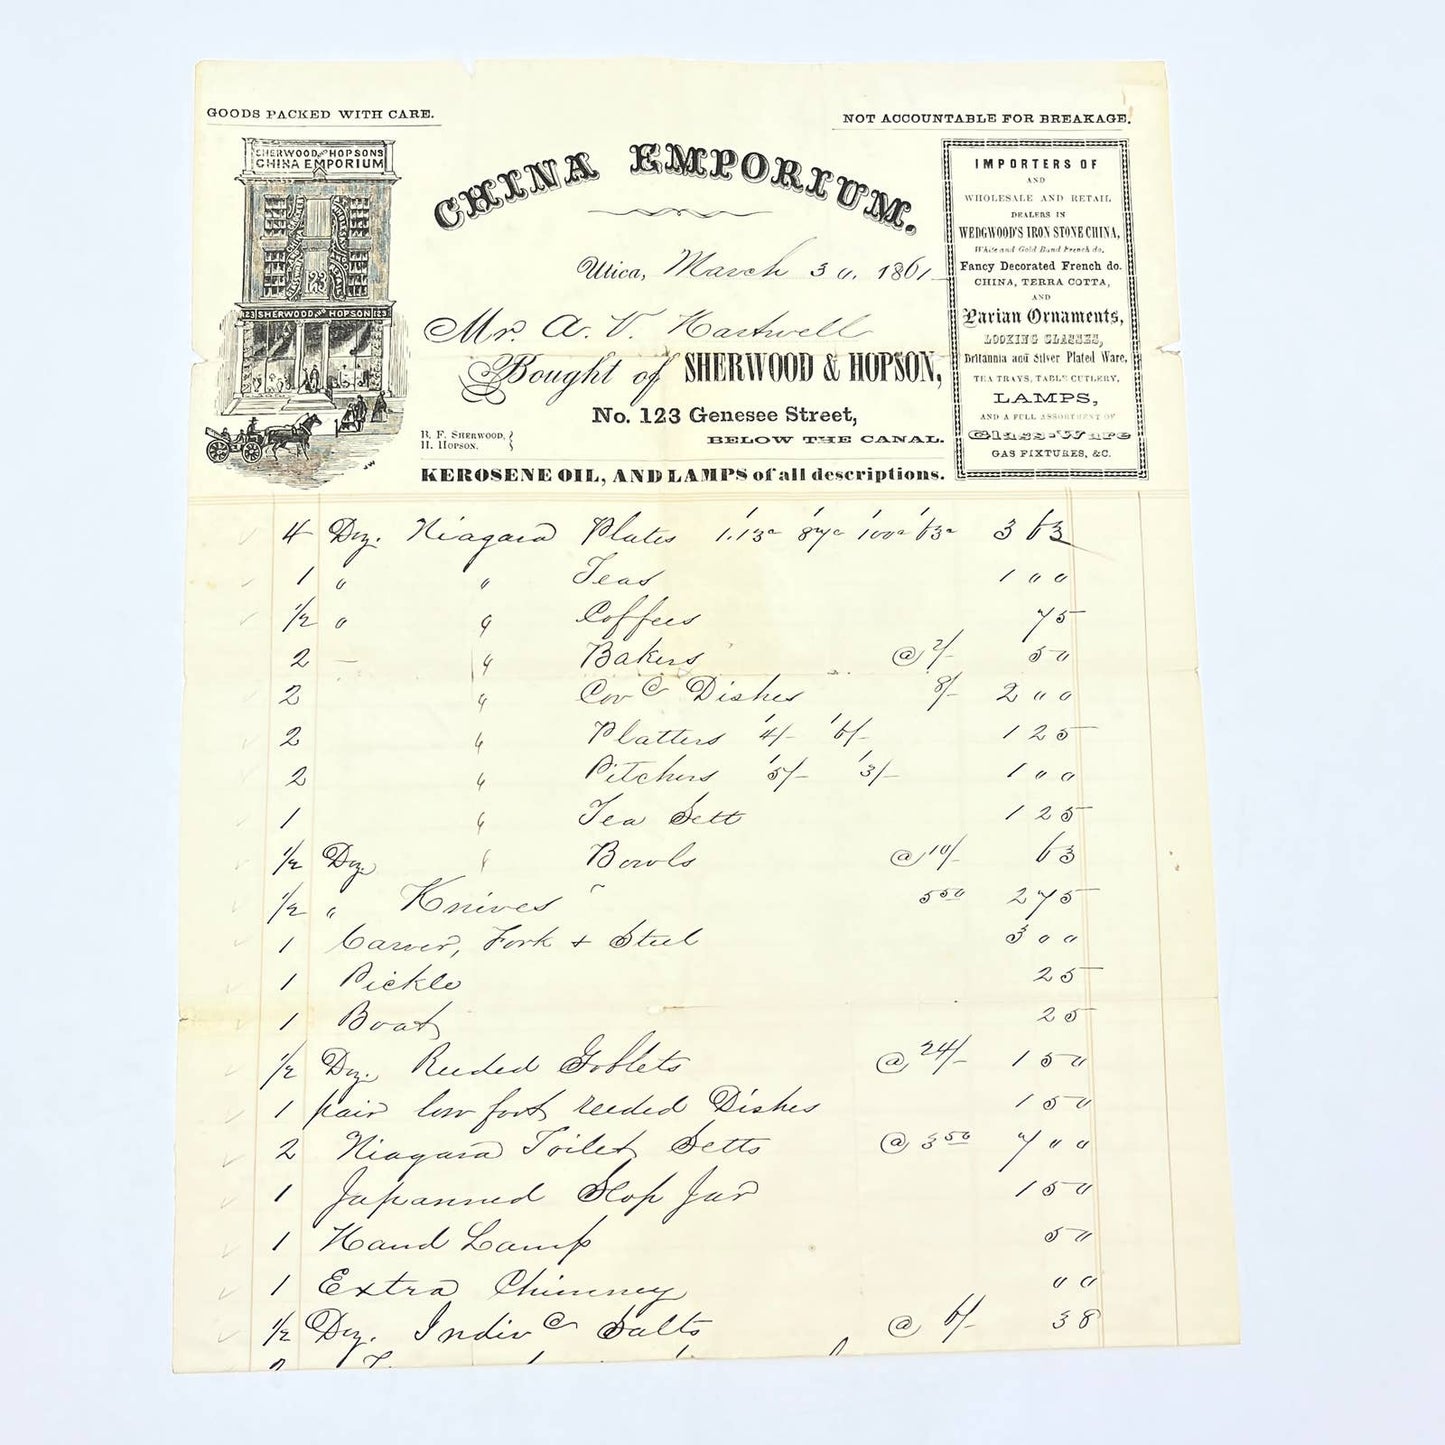 GOODS PACKED WITH CARE.
NOT ACCOUNTABLE FOR BREAKAGE.
SHERWOOD AND HOPSONS
CHINA EMPORIUM
123 SHERWOOD AND HOPSON 123
JW
CHINA EMPORIUM.
Utica, March 30, 1861
Mr. A. V. Hartwell
Bought of SHERWOOD & HOPSON,
No. 123 Genesee Street,
R. F. SHERWOOD,
H. HOPSON.
BELOW THE CANAL.
KEROSENE OIL, AND LAMPS of all descriptions.
IMPORTERS OF
AND
WHOLESALE AND RETAIL
DEALERS IN
WEDGWOOD'S IRON STONE CHINA,
White and Gold Band French do,
Fancy Decorated French do.
CHINA, TERRA COTTA,
AND
Parian Ornaments,
LOOKING GLASSES,
Brittannia and Silver Plated Ware,
TEA TRAYS, TABLE CUTLERY,
LAMPS,
AND A FULL ASSORTMENT OF
Glass-Ware
GAS FIXTURES, &C.
4 Doz. Niagara Plates 1.13c 87c 100c 63c 3 63
1 " " Teas 1 00
1/2 " " Coffees 75
2 — " Bakers @ 2/- 50
2 " Covd Dishes 8/- 2 00
2 " Platters 4/- 6/- 1 25
2 " Pitchers 5/- 3/- 1 00
1 " Tea Sett 1 25
1/2 Doz " Bowls @ 10/- 63
1/2 " Knives 5 50 2 75
1 Carver, Fork + Steel 3 00
1 Pickle 25
1 Boat 25
1/2 Doz. Reeded Goblets @ 24/- 1 50
1 pair low foot reeded Dishes 1 50
2 Niagara Toilet Setts @ 3 50 7 00
1 Japanned Slop Jar 1 50
1 Hand Lamp 50
1 Extra Chimney 00
1/2 Doz. Indivd Salts @ 6/- 38